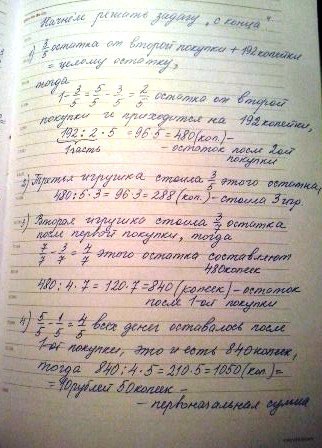 Начнём решать задачу „с конца“
1) 3/5 остатка от второй покупки + 192 копейки
= целому остатку,
тогда
1 - 3/5 = 5/5 - 3/5 = 2/5 остатка от второй
покупки и приходится на 192 копейки,
192 : 2 · 5 = 96·5 = 480 (коп.) –
1часть – остаток после 2ой
покупки
2) Третья игрушка стоила 3/5 этого остатка,
480 : 5 · 3 = 96·3 = 288 (коп.) - стоила 3 игр.
3) Вторая игрушка стоила 3/7 остатка
после первой покупки, тогда
7/7 - 3/7 = 4/7 этого остатка составляют
480 копеек
480 : 4 · 7 = 120·7 = 840 (копеек) – остаток
после 1-ой покупки
4) 5/5 - 1/5 = 4/5 всех денег оставалось после
1-ой покупки, это и есть 840 копеек,
тогда 840 : 4 · 5 = 210·5 = 1050 (коп.) =
= 10 рублей 50 копеек –
– первоначальная сумма